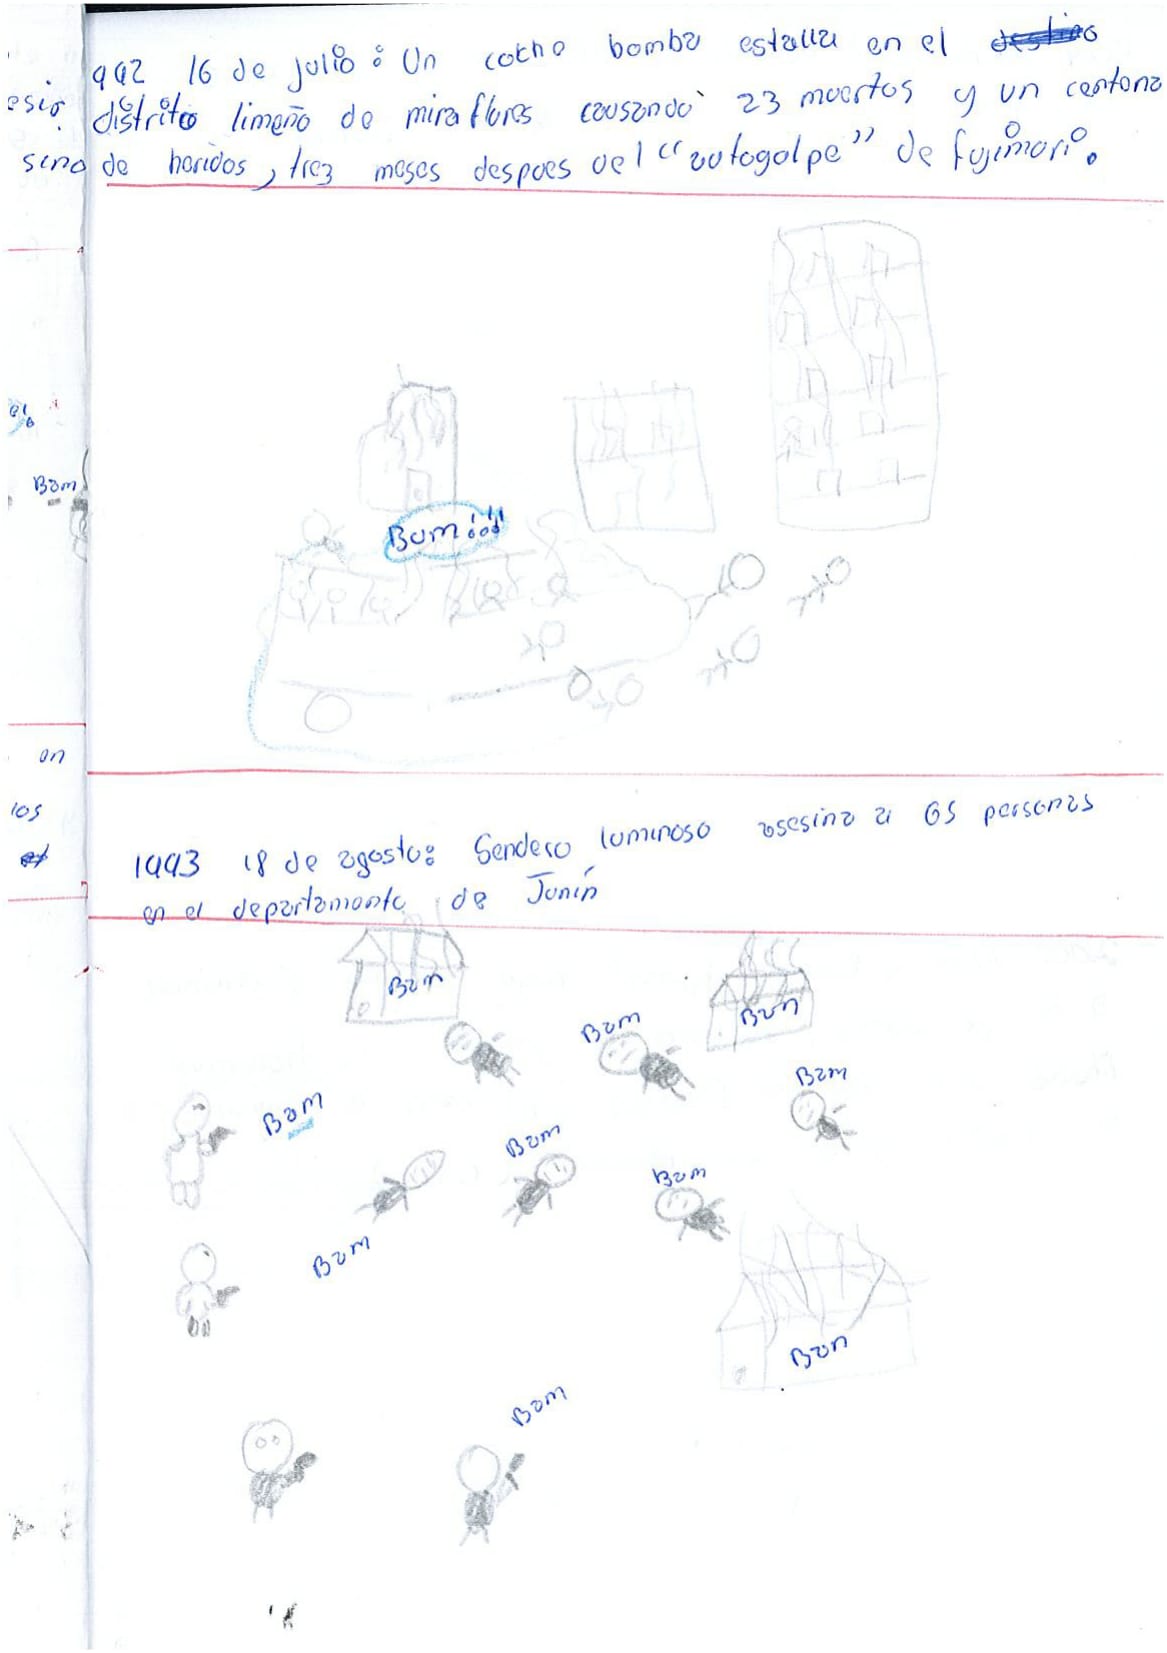 992 16 de julio: Un coche bomba estalla en el
esir distrito limeño de miraflores causando 23 muertos y un centena
sino de heridos, trez meses despues del "autogolpe" de fujimori.
Bam
Bum!!!
on
los
1993 18 de agosto: Sendero luminoso asesina a 65 personas
en el departamento de Junín
Bam
Bam
Bam
Bam
Bam
Bam
Bam
Bam
Bam
Bam